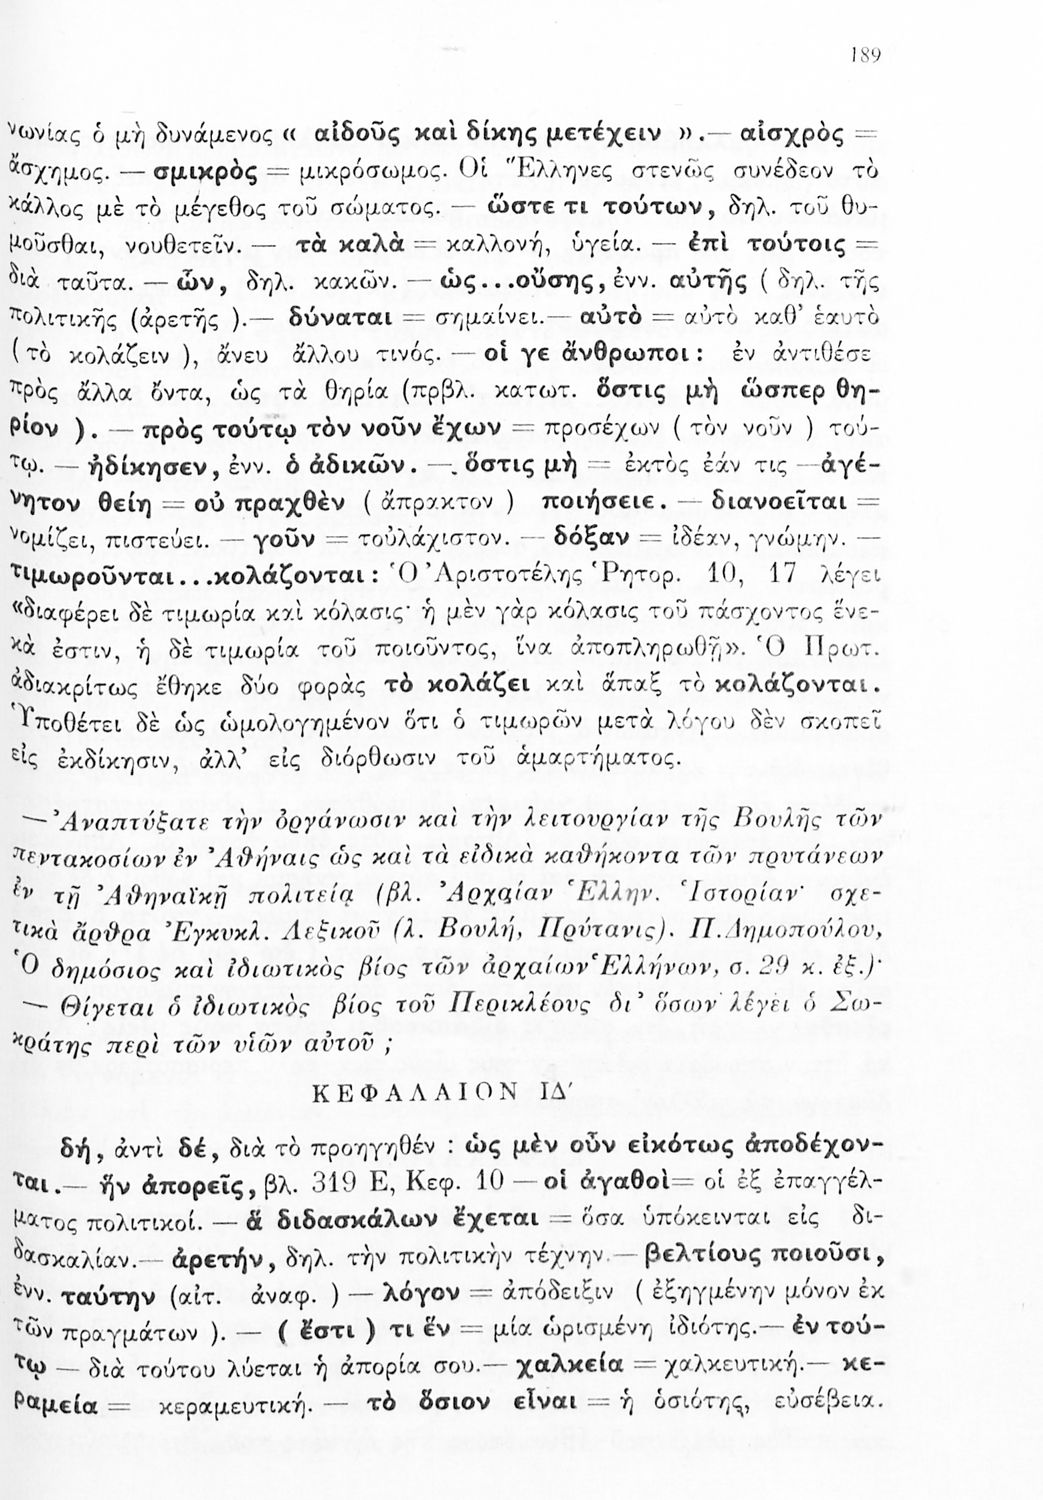 189
νωνίας ὁ μὴ δυνάμενος « αἰδοῦς καὶ δίκης μετέχειν ».— αἰσχρὸς =
ἄσχημος. — σμικρὸς = μικρόσωμος. Οἱ Ἕλληνες στενῶς συνέδεον τὸ
κάλλος μὲ τὸ μέγεθος τοῦ σώματος. — ὥστε τι τούτων, δηλ. τοῦ θυ-
μοῦσθαι, νουθετεῖν. — τὰ καλὰ = καλλονή, ὑγεία. — ἐπὶ τούτοις =
διὰ ταῦτα. — ὧν, δηλ. κακῶν. — ὡς...οὔσης, ἐνν. αὐτῆς ( δηλ. τῆς
πολιτικῆς (ἀρετῆς ).— δύναται = σημαίνει.— αὐτὸ = αὐτὸ καθ’ ἑαυτὸ
(τὸ κολάζειν ), ἄνευ ἄλλου τινός. — οἱ γε ἄνθρωποι : ἐν ἀντιθέσε
πρὸς ἄλλα ὄντα, ὡς τὰ θηρία (πρβλ. κατωτ. ὅστις μὴ ὥσπερ θη-
ρίον ). — πρὸς τούτῳ τὸν νοῦν ἔχων = προσέχων ( τὸν νοῦν ) τού-
τῳ. — ἠδίκησεν, ἐνν. ὁ ἀδικῶν. —. ὅστις μὴ = ἐκτὸς ἐάν τις —ἀγέ-
νητον θείη = οὐ πραχθὲν ( ἄπρακτον ) ποιήσειε. — διανοεῖται =
νομίζει, πιστεύει. — γοῦν = τοὐλάχιστον. — δόξαν = ἰδέαν, γνώμην. —
τιμωροῦνται...κολάζονται : Ὁ Ἀριστοτέλης Ῥητορ. 10, 17 λέγει
«διαφέρει δὲ τιμωρία καὶ κόλασις· ἡ μὲν γὰρ κόλασις τοῦ πάσχοντος ἕνε-
κά ἐστιν, ἡ δὲ τιμωρία τοῦ ποιοῦντος, ἵνα ἀποπληρωθῇ». Ὁ Πρωτ.
ἀδιακρίτως ἔθηκε δύο φορὰς τὸ κολάζει καὶ ἅπαξ τὸ κολάζονται.
Ὑποθέτει δὲ ὡς ὡμολογημένον ὅτι ὁ τιμωρῶν μετὰ λόγου δὲν σκοπεῖ
εἰς ἐκδίκησιν, ἀλλ’ εἰς διόρθωσιν τοῦ ἁμαρτήματος.
— Ἀναπτύξατε τὴν ὀργάνωσιν καὶ τὴν λειτουργίαν τῆς Βουλῆς τῶν
πεντακοσίων ἐν Ἀθήναις ὡς καὶ τὰ εἰδικὰ καθήκοντα τῶν πρυτάνεων
ἐν τῇ Ἀθηναϊκῇ πολιτείᾳ (βλ. Ἀρχαίαν Ἑλλην. Ἱστορίαν· σχε-
τικὰ ἄρθρα Ἐγκυκλ. Λεξικοῦ (λ. Βουλή, Πρύτανις). Π.Δημοπούλου,
Ὁ δημόσιος καὶ ἰδιωτικὸς βίος τῶν ἀρχαίων Ἑλλήνων, σ. 29 κ. ἑξ.)·
— Θίγεται ὁ ἰδιωτικὸς βίος τοῦ Περικλέους δι’ ὅσων λέγει ὁ Σω-
κράτης περὶ τῶν υἱῶν αὐτοῦ ;
ΚΕΦΑΛΑΙΟΝ ΙΔ′
δή, ἀντὶ δέ, διὰ τὸ προηγηθέν : ὡς μὲν οὖν εἰκότως ἀποδέχον-
ται.— ἣν ἀπορεῖς, βλ. 319 Ε, Κεφ. 10 — οἱ ἀγαθοὶ= οἱ ἐξ ἐπαγγέλ-
ματος πολιτικοί. — ἃ διδασκάλων ἔχεται = ὅσα ὑπόκεινται εἰς δι-
δασκαλίαν.— ἀρετήν, δηλ. τὴν πολιτικὴν τέχνην.— βελτίους ποιοῦσι,
ἐνν. ταύτην (αἰτ. ἀναφ. ) — λόγον = ἀπόδειξιν ( ἐξηγμένην μόνον ἐκ
τῶν πραγμάτων ). — ( ἔστι ) τι ἓν = μία ὡρισμένη ἰδιότης.— ἐν τού-
τῳ — διὰ τούτου λύεται ἡ ἀπορία σου.— χαλκεία = χαλκευτική.— κε-
ραμεία = κεραμευτική. — τὸ ὅσιον εἶναι = ἡ ὁσιότης, εὐσέβεια.